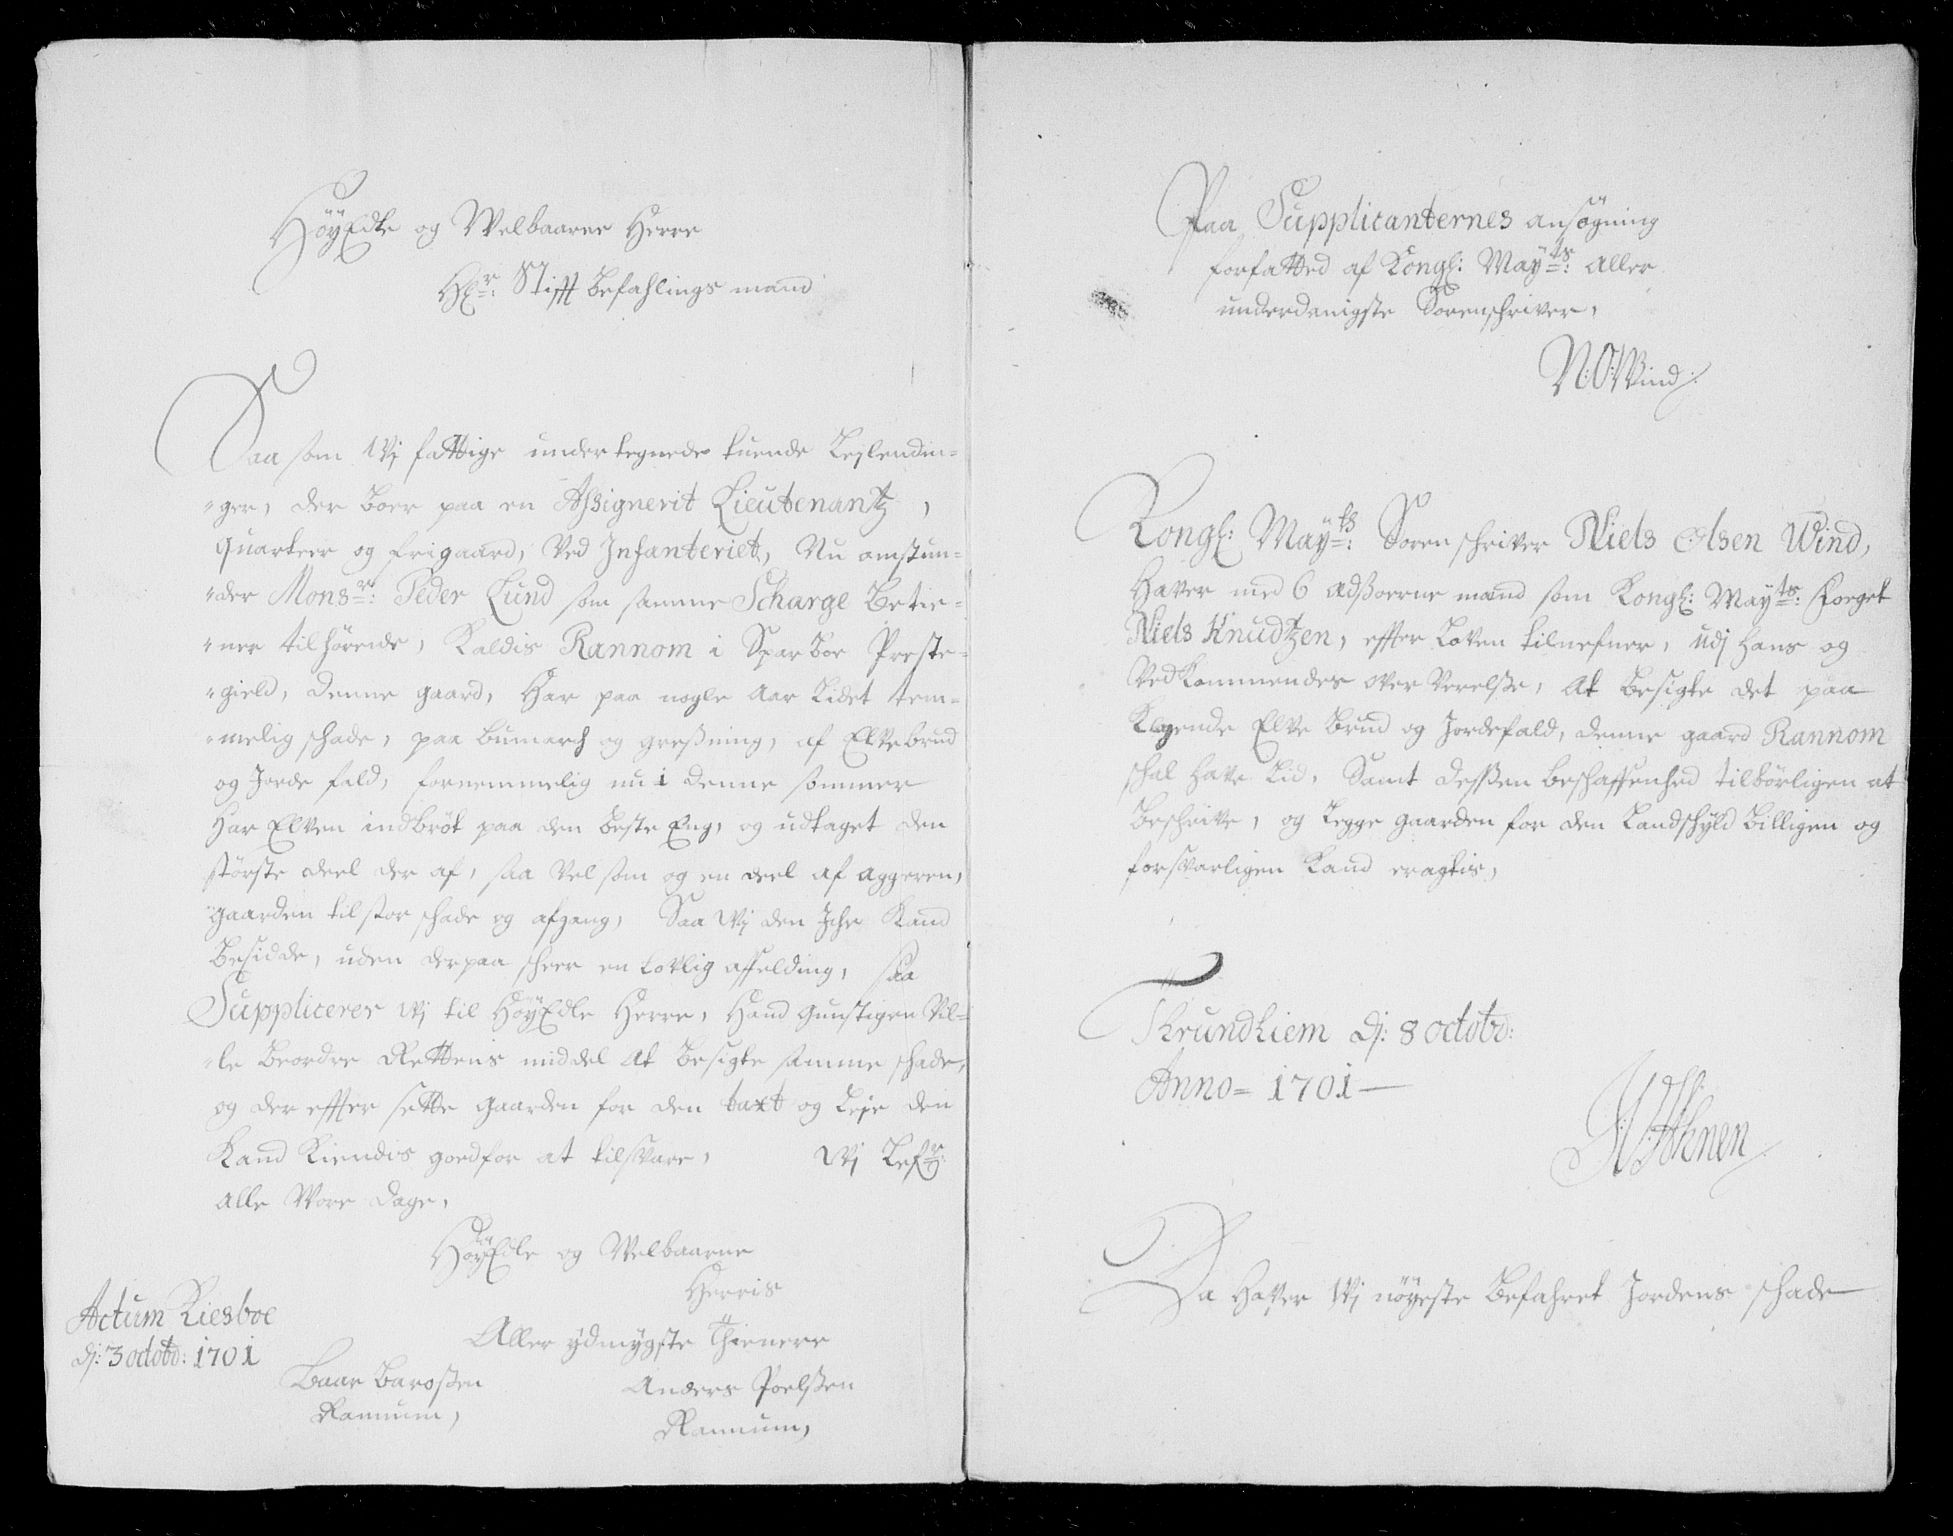 HöyEdle og Welbaarne Herre
Hr: Stifft Befahlings mand
Saa som Wj fattige under tegnede tuende Leylendin=
=ger, der boer paa en Assignerit Lieutenantz,
quarteer og frigaard, Ved Infanteriet, Nu omstun=
=der Monsr: Peder Lund som samme Scharge Betie=
=ner tilhörende, Kaldis Rannom i Sparboe Preste=
=gield, denne gaard, Har paa nogle Aar Lidet tem=
=melig schade, paa bumarch og gressning, af Elvebrud
og Jorde fald, fornemmelig nu i denne sommer
Har Elven indbröt paa den beste Eng, og udtaget den
störste deel der af, saa vel som og en deel af aggeren,
gaarden til stor schade og afgang, Saa Wj den Iche Kand
Besidde, uden derpaa scheer en lovlig affelding, saa
Supplicerer Wj til HöyEdle Herre, Hand gunstigen Vil=
=le beordre Rettens middel at besigte samme schade,
og der effter sette gaarden for den taxt og Leje den
Kand Kiendis goed for at tilsvare, Wj Lefr:
alle Wore dage,
HöyEdle og Welbaarne
Herris
Aller ydmygste thienere
Actum Riesboe
dj: 3 octobr: 1701
Baar Barossen
Rannum,
Anders Poelssen
Rannum,
Paa Supplicanternes ansögning
forfatted af Kongl: Mayts: aller
underdanigste Sorenschriver,
N:O:Wind:
Kongl: Mayts: Soren schriver Niels Olsen Wind,
Haver med 6 Edssoerne mænd som Kongl: Mayts: Foeget
Niels Knudtzen, effter Loven tilnefner, udj Hans og
Vedkommendes oververelsse, at besigte det paa
Klagende Elve brud og Jordefald, denne gaard Rannom
schal have Lid, Samt dessen beschaffenhed tilbörligen at
beschrive, og legge gaarden for den Landschyld billigen og
forsvarligen Kand eragtis,
Thrundhiem dj: 8 octobr:
Anno= 1701
Da Haver Wj nöyeste befahret Jordens schade